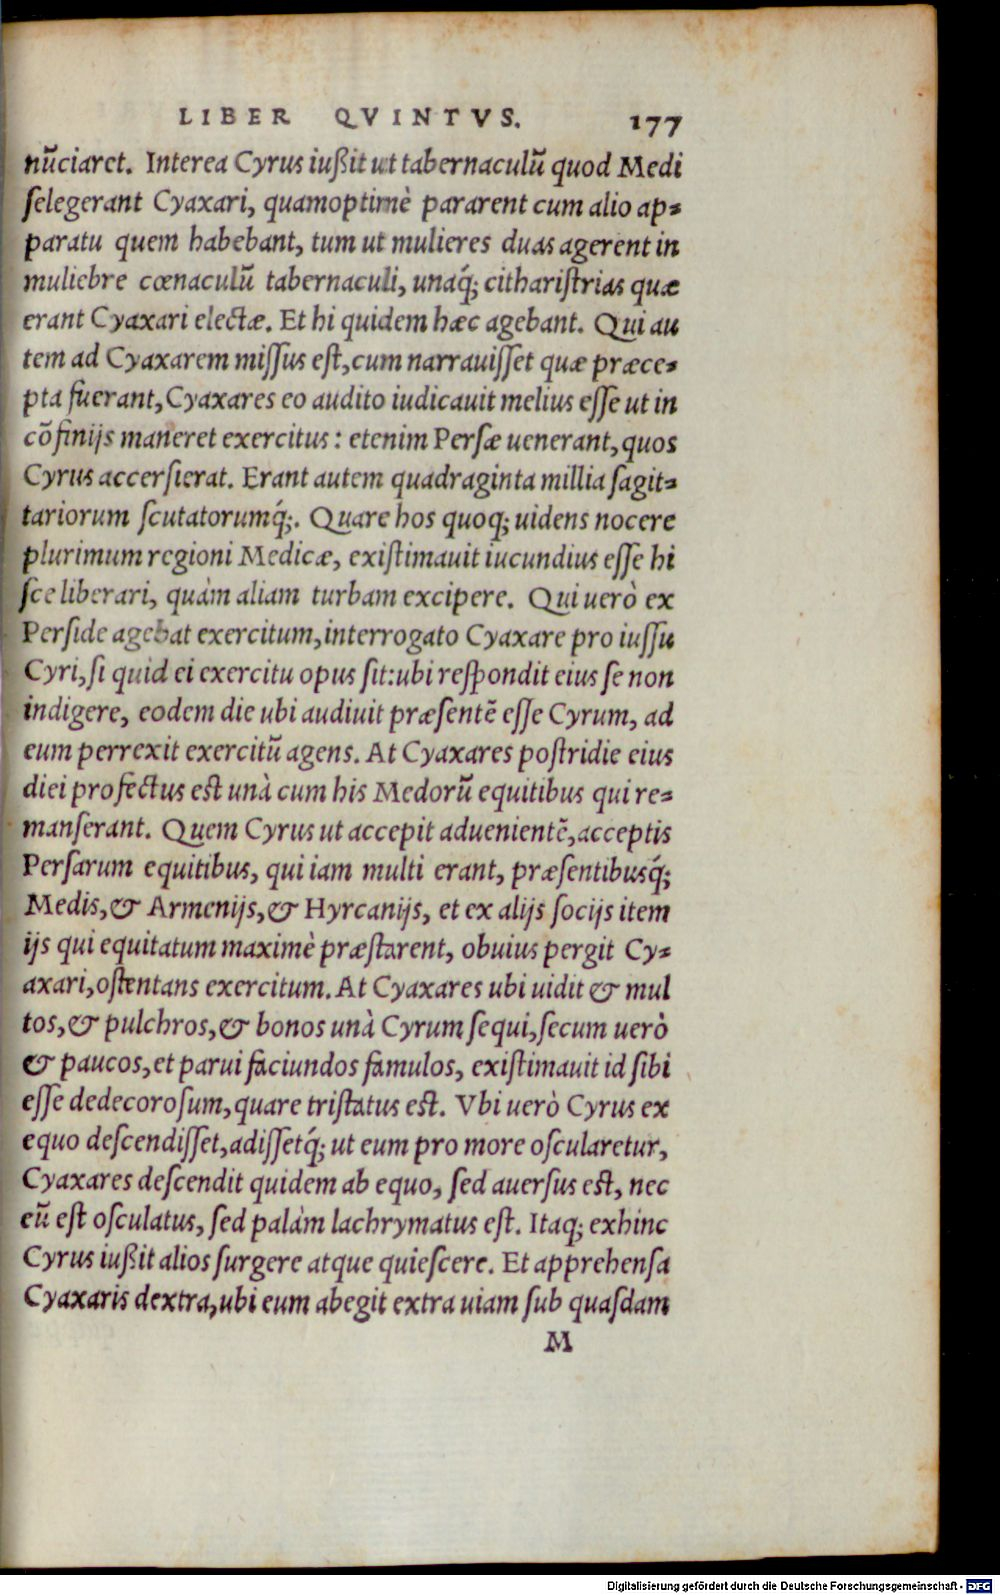 LIBER QVINTVS. 177
nũciaret. Interea Cyrus iußit ut tabernaculũ quod Medi
ſelegerant Cyaxari, quamoptimè pararent cum alio ap-
paratu quem habebant, tum ut mulieres duas agerent in
muliebre cœnaculũ tabernaculi, unaq́; cithariſtrias quæ
erant Cyaxari electæ. Et hi quidem hæc agebant. Qui au
tem ad Cyaxarem miſſus eſt, cum narrauiſſet quæ præce-
pta fuerant, Cyaxares eo audito iudicauit melius eſſe ut in
cõfinijs maneret exercitus: etenim Perſæ uenerant, quos
Cyrus accerſierat. Erant autem quadraginta millia ſagit-
tariorum ſcutatorumq́;. Quare hos quoq; uidens nocere
plurimum regioni Medicæ, exiſtimauit iucundius eſſe hi
ſce liberari, quàm aliam turbam excipere. Qui uerò ex
Perſide agebat exercitum, interrogato Cyaxare pro iuſſu
Cyri, ſi quid ei exercitu opus ſit: ubi reſpondit eius ſe non
indigere, eodem die ubi audiuit præſentẽ eſſe Cyrum, ad
eum perrexit exercitũ agens. At Cyaxares poſtridie eius
diei profectus eſt unà cum his Medorũ equitibus qui re-
manſerant. Quem Cyrus ut accepit aduenientẽ, acceptis
Perſarum equitibus, qui iam multi erant, præſentibusq́;
Medis, & Armenijs, & Hyrcanijs, et ex alijs ſocijs item
ijs qui equitatum maximè præſtarent, obuius pergit Cy-
axari, oſtentans exercitum. At Cyaxares ubi uidit & mul
tos, & pulchros, & bonos unà Cyrum ſequi, ſecum uerò
& paucos, et parui faciundos famulos, exiſtimauit id ſibi
eſſe dedecoroſum, quare triſtatus eſt. Vbi uerò Cyrus ex
equo deſcendiſſet, adiſſetq́; ut eum pro more oſcularetur,
Cyaxares deſcendit quidem ab equo, ſed auerſus eſt, nec
eũ eſt oſculatus, ſed palàm lachrymatus eſt. Itaq; exhinc
Cyrus iußit alios ſurgere atque quieſcere. Et apprehenſa
Cyaxaris dextra, ubi eum abegit extra uiam ſub quaſdam
M
Digitalisierung gefördert durch die Deutsche Forschungsgemeinschaft - DFG